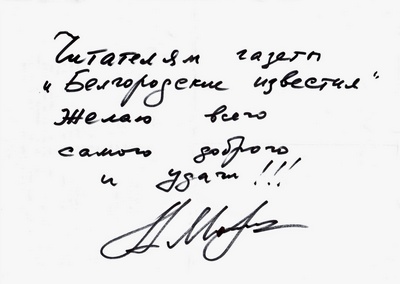 Читателям газеты
"Белгородские известия"
Желаю всего
самого доброго
и удачи!!!